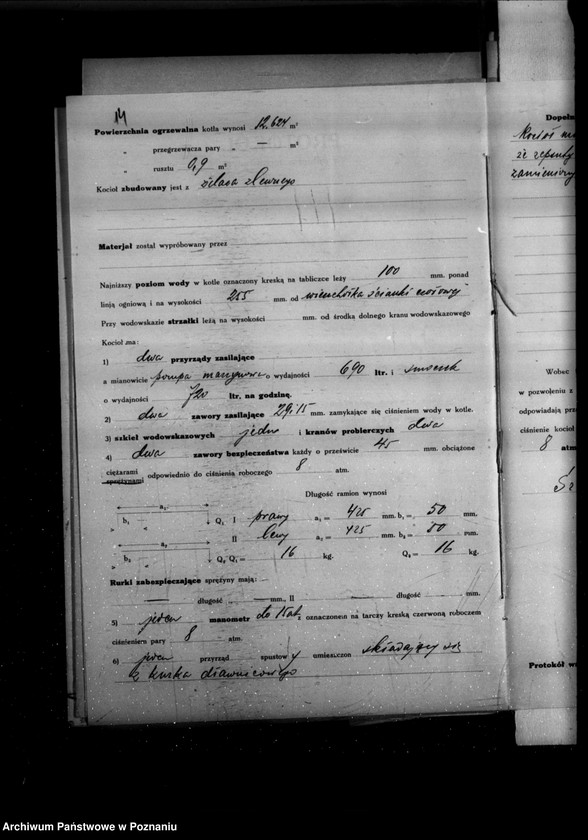 14
Powierzchnia ogrzewalna kotła wynosi 12.624 m²
„ przegrzewacza pary „ — m²
„ rusztu 0,9 m²
Kocioł zbudowany jest z żelaza zlewnego
Materjał został wypróbowany przez
Najniższy poziom wody w kotle oznaczony kreską na tabliczce leży 100 mm. ponad
linją ogniową i na wysokości 255 mm. od wierzchołka ścianki czołowej
Przy wodowskazie strzałki leżą na wysokości mm. od środka dolnego kranu wodowskazowego
Kocioł ma:
1) dwa przyrządy zasilające
a mianowicie pompa maszynowa o wydajności 690 ltr. i smoczek
o wydajności 720 ltr. na godzinę.
2) dwa zawory zasilające 29 i 15 mm. zamykające się ciśnieniem wody w kotle.
3) szkieł wodowskazowych jedno i kranów probierczych dwa
4) dwa zawory bezpieczeństwa każdy o prześwicie 45 mm. obciążone
ciężarami
sprężynami odpowiednio do ciśnienia roboczego 8 atm.
Długość ramion wynosi
a₁ b₁ Q₁ I prawy a₁ = 425 mm. b₁ = 50 mm.
a₂ b₂ II lewy a₂ = 425 mm. b₂ = 50 mm.
Q₁ = 16 kg. Q₂ = 16 kg.
Rurki zabezpieczające sprężyny mają:
— długość — mm., II — długość mm.
5) jeden manometr do 15 at z oznaczonem na tarczy kreską czerwoną roboczem
ciśnieniem pary 8 atm.
6) jeden przyrząd spustowy umieszczon składający się
z kurka dławnicowego
Dopełn
Kocioł
że
Wobec
w pozwoleniu z
odpowiadają prz
ciśnienie kocioł
8 atm
Protokół w
Archiwum Państwowe w Poznaniu